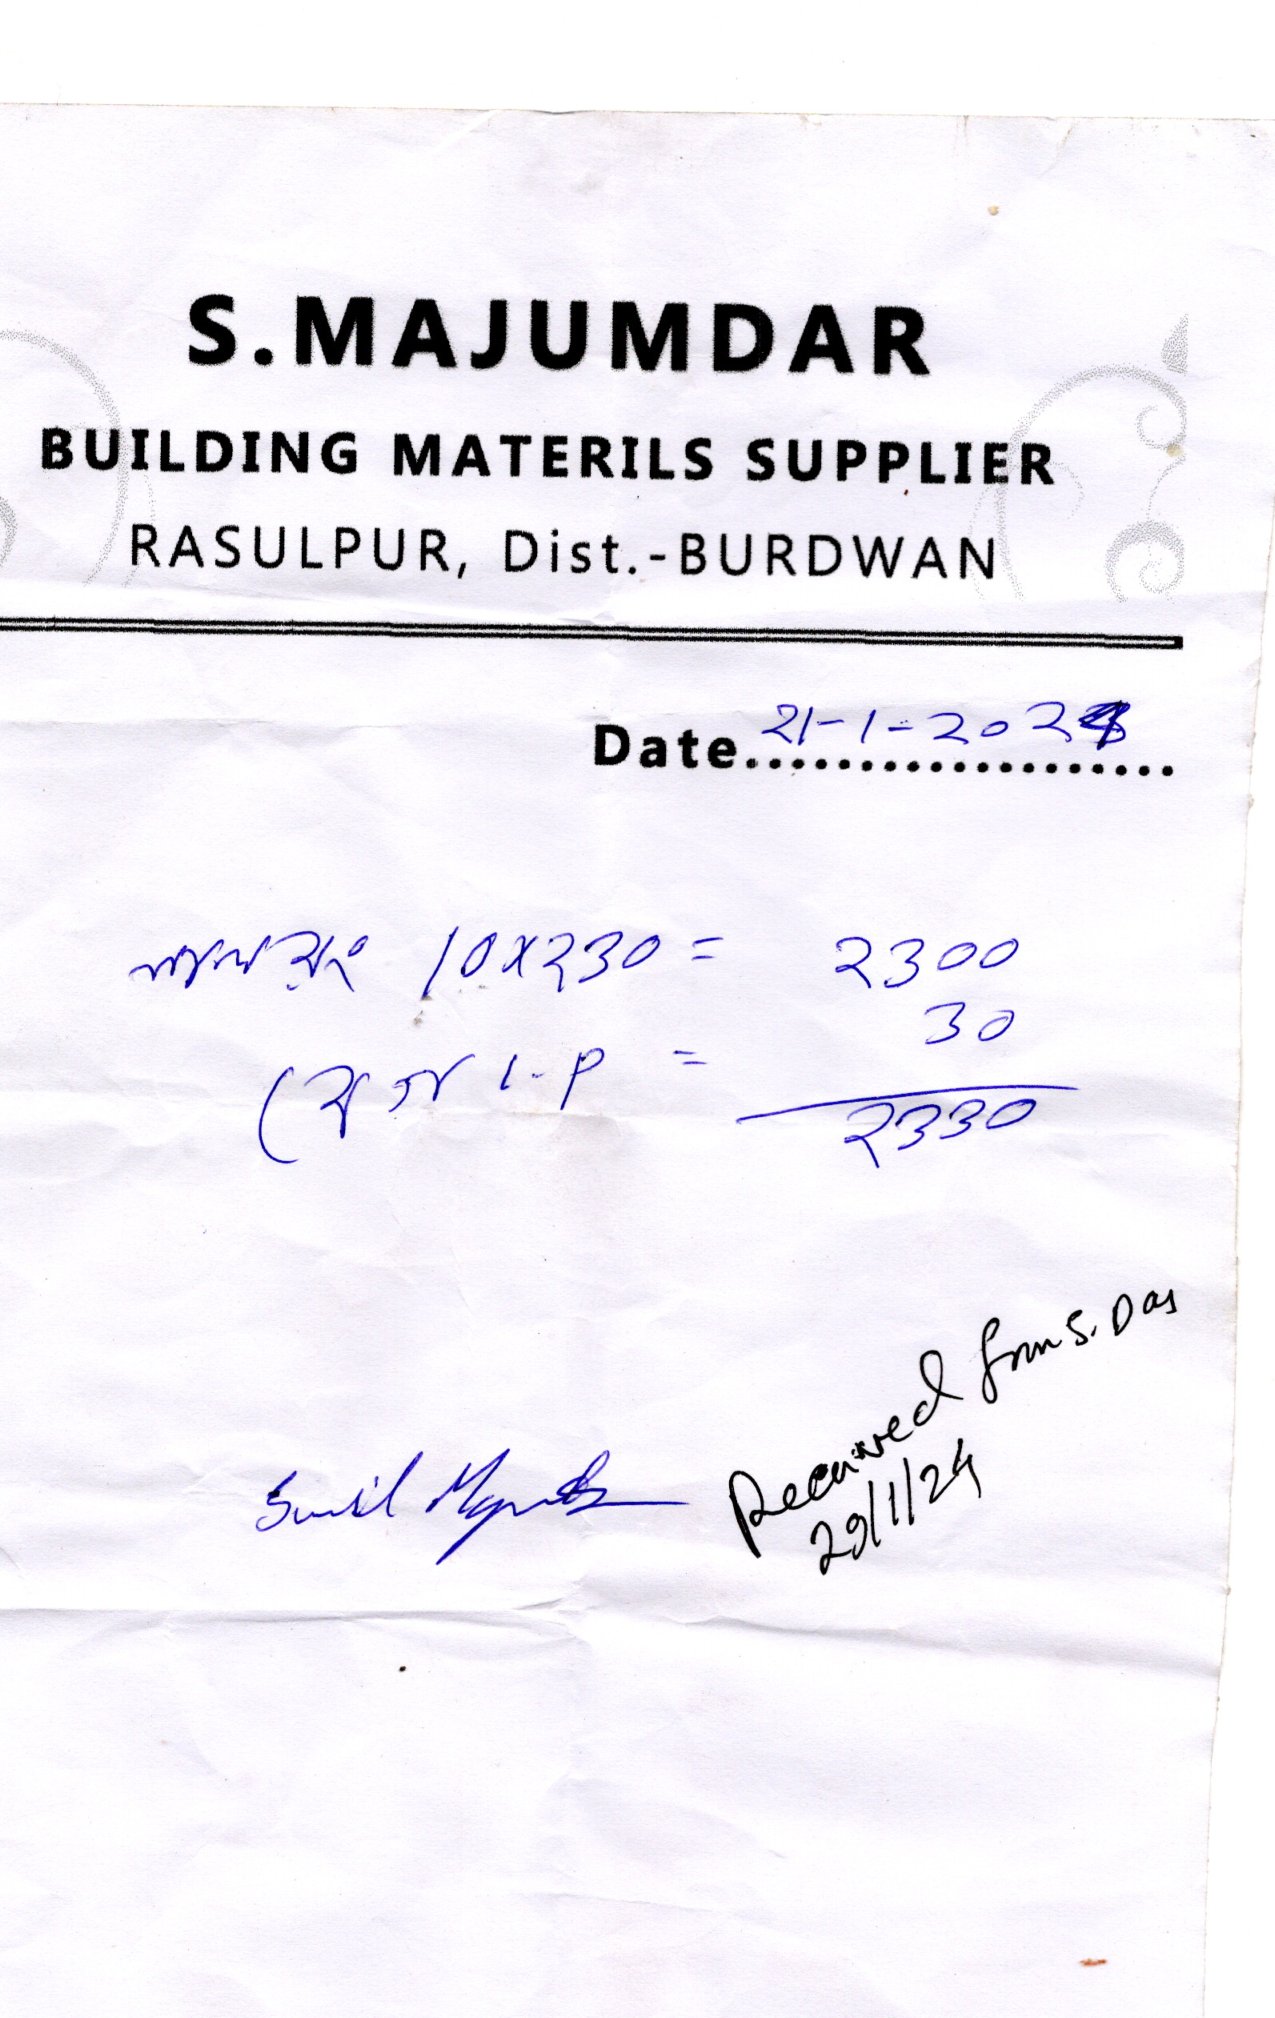 S.MAJUMDAR
BUILDING MATERILS SUPPLIER
RASULPUR, Dist.-BURDWAN
Date.................... 21-1-2024
10x230 = 2300
30
1-P =
2330
Received from S. Das
29/1/24
Sunil